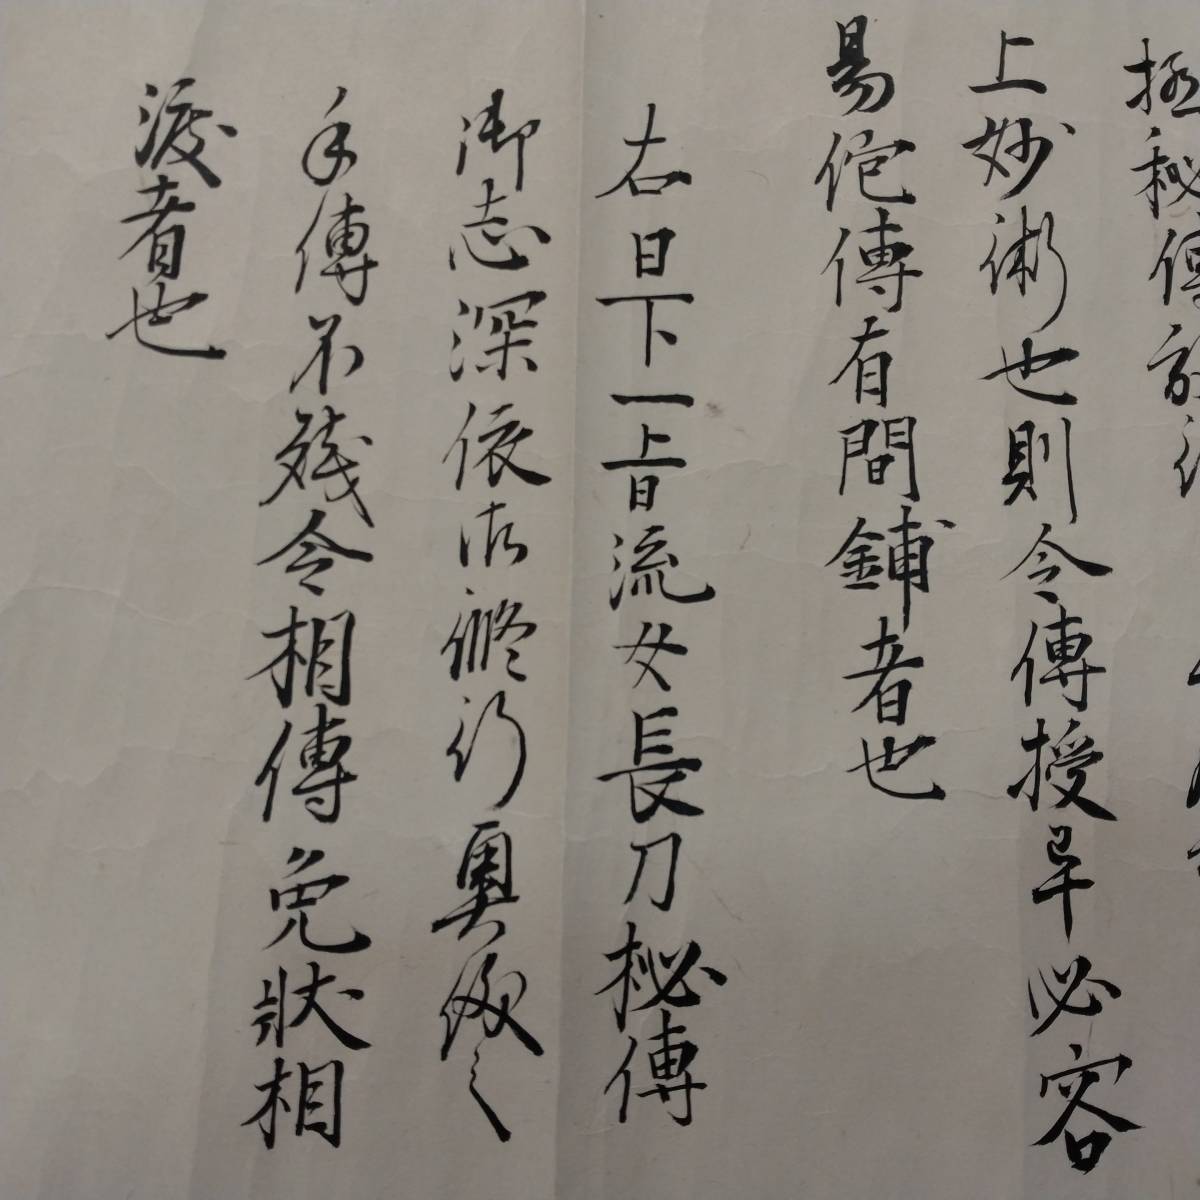 極秘傳
上妙術也則令傳授早必容
易佗傳有間鋪者也
右日下一上旨流女長刀秘傳
御志深依御修行奥儀之
手傳不残令相傳免状相
渡者也